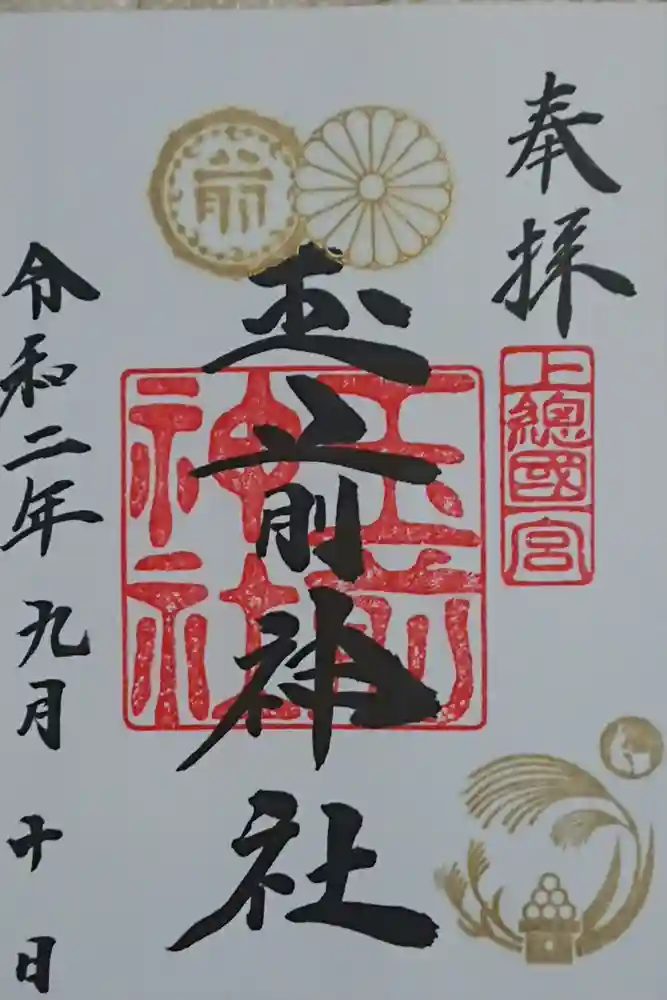 奉拝
上總國一宮
前
玉前神社
玉前
神社
令和二年九月十日